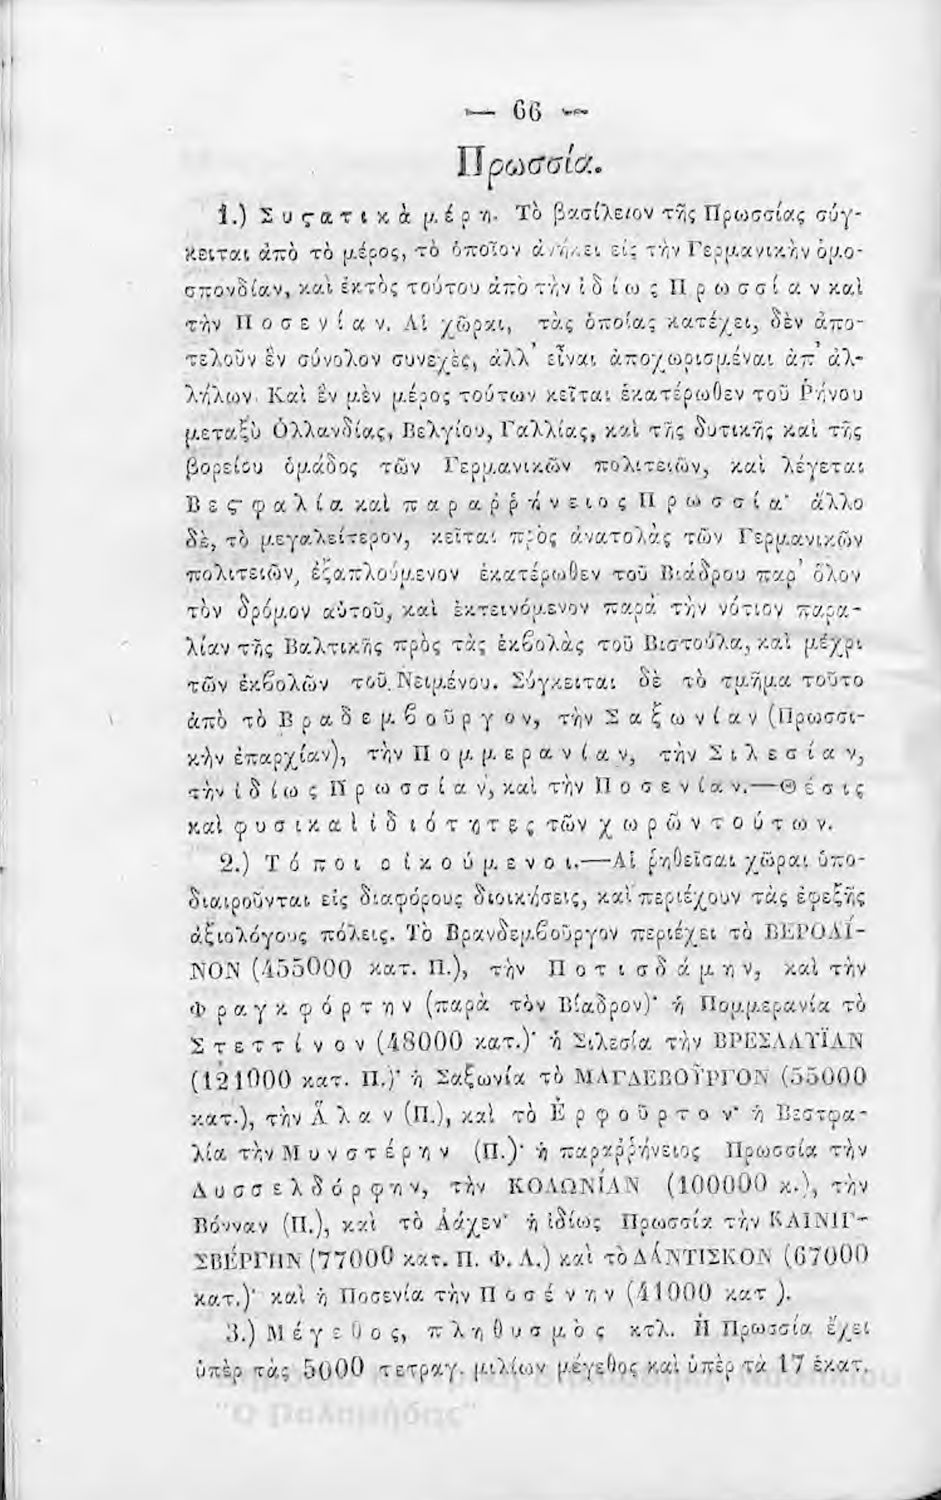 — 66 —
Πρωσσία.
1.) Συϛατικὰ μέρη. Τὸ βασίλειον τῆς Πρωσσίας σύγ-
κειται ἀπὸ τὸ μέρος, τὸ ὁποῖον ἀνήκει εἰς τὴν Γερμανικὴν ὁμο-
σπονδίαν, καὶ ἐκτὸς τούτου ἀπὸ τὴν ἰδίως Πρωσσίαν καὶ
τὴν Ποσενίαν. Αἱ χῶραι, τὰς ὁποίας κατέχει, δὲν ἀπο-
τελοῦν ἓν σύνολον συνεχὲς, ἀλλ' εἶναι ἀποχωρισμέναι ἀπ' ἀλ-
λήλων. Καὶ ἓν μὲν μέρος τούτων κεῖται ἑκατέρωθεν τοῦ Ῥήνου
μεταξὺ Ὁλλανδίας, Βελγίου, Γαλλίας, καὶ τῆς δυτικῆς καὶ τῆς
βορείου ὁμάδος τῶν Γερμανικῶν πολιτειῶν, καὶ λέγεται
Βεϛφαλία καὶ παραῤῥήνειος Πρωσσία· ἄλλο
δὲ, τὸ μεγαλείτερον, κεῖται πρὸς ἀνατολὰς τῶν Γερμανικῶν
πολιτειῶν, ἐξαπλούμενον ἑκατέρωθεν τοῦ Βιάδρου παρ' ὅλον
τὸν δρόμον αὐτοῦ, καὶ ἐκτεινόμενον παρὰ τὴν νότιον παρα-
λίαν τῆς Βαλτικῆς πρὸς τὰς ἐκβολὰς τοῦ Βιστούλα, καὶ μέχρι
τῶν ἐκβολῶν τοῦ Νειμένου. Σύγκειται δὲ τὸ τμῆμα τοῦτο
ἀπὸ τὸ Βραδεμβοῦργον, τὴν Σαξωνίαν (Πρωσσι-
κὴν ἐπαρχίαν), τὴν Πομμερανίαν, τὴν Σιλεσίαν,
τὴν ἰδίως Πρωσσίαν, καὶ τὴν Ποσενίαν.—Θέσις
καὶ φυσικαὶ ἰδιότητες τῶν χωρῶν τούτων.
2.) Τόποι οἰκούμενοι.—Αἱ ῥηθεῖσαι χῶραι ὑπο-
διαιροῦνται εἰς διαφόρους διοικήσεις, καὶ περιέχουν τὰς ἐφεξῆς
ἀξιολόγους πόλεις. Τὸ Βρανδεμβοῦργον περιέχει τὸ ΒΕΡΟΛΙ-
ΝΟΝ (455000 κατ. Π.), τὴν Ποτισδάμην, καὶ τὴν
Φραγκφόρτην (παρὰ τὸν Βίαδρον)· ἡ Πομμερανία τὸ
Στεττίνον (48000 κατ.)· ἡ Σιλεσία τὴν ΒΡΕΣΛΑΥΪΑΝ
(121000 κατ. Π.)· ἡ Σαξωνία τὸ ΜΑΓΔΕΒΟΥΡΓΟΝ (55000
κατ.), τὴν Ἅλαν (Π.), καὶ τὸ Ἐρφοῦρτον· ἡ Βεστφα-
λία τὴν Μυνστέρην (Π.)· ἡ παραῤῥήνειος Πρωσσία τὴν
Δυσσελδόρφην, τὴν ΚΟΛΩΝΙΑΝ (100000 κ.), τὴν
Βόνναν (Π.), καὶ τὸ Ἀάχεν· ἡ ἰδίως Πρωσσία τὴν ΚΑΙΝΙΓ-
ΣΒΕΡΓΗΝ (77000 κατ. Π. Φ. Λ.) καὶ τὸ ΔΑΝΤΙΣΚΟΝ (67000
κατ.)· καὶ ἡ Ποσενία τὴν Ποσένην (41000 κατ ).
3.) Μέγεθος, πληθυσμὸς κτλ. Ἡ Πρωσσία ἔχει
ὑπὲρ τὰς 5000 τετραγ. μιλίων μέγεθος καὶ ὑπὲρ τὰ 17 ἑκατ.
"Ο Παλαμήδης"